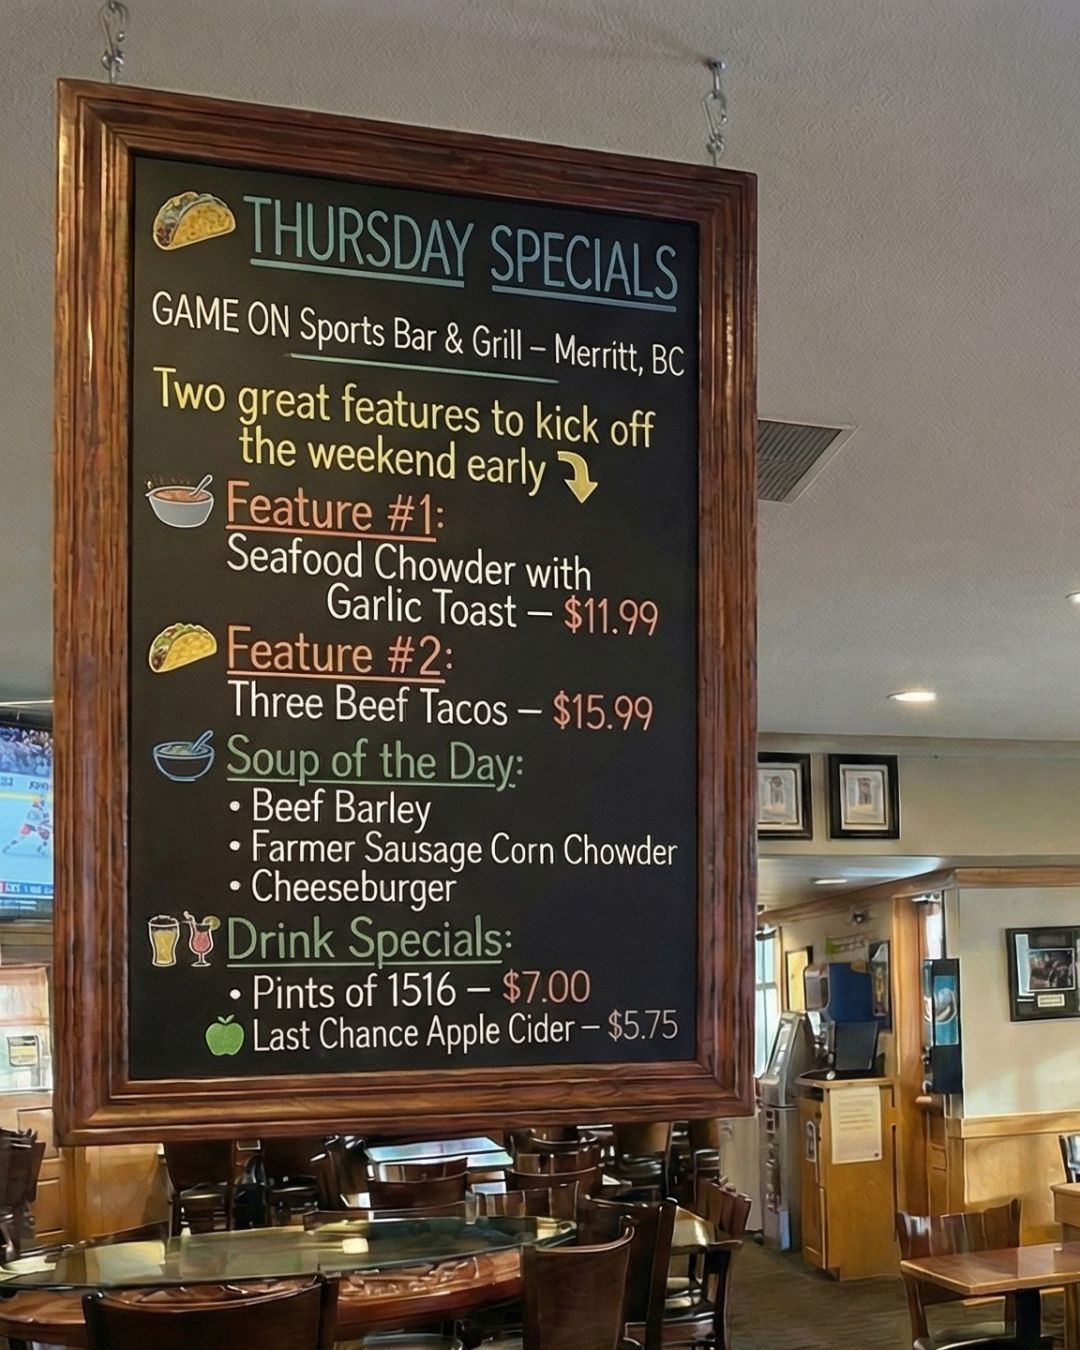 THURSDAY SPECIALS
GAME ON Sports Bar & Grill – Merritt, BC
Two great features to kick off
the weekend early
Feature #1:
Seafood Chowder with
Garlic Toast – $11.99
Feature #2:
Three Beef Tacos – $15.99
Soup of the Day:
• Beef Barley
• Farmer Sausage Corn Chowder
• Cheeseburger
Drink Specials:
• Pints of 1516 – $7.00
Last Chance Apple Cider – $5.75